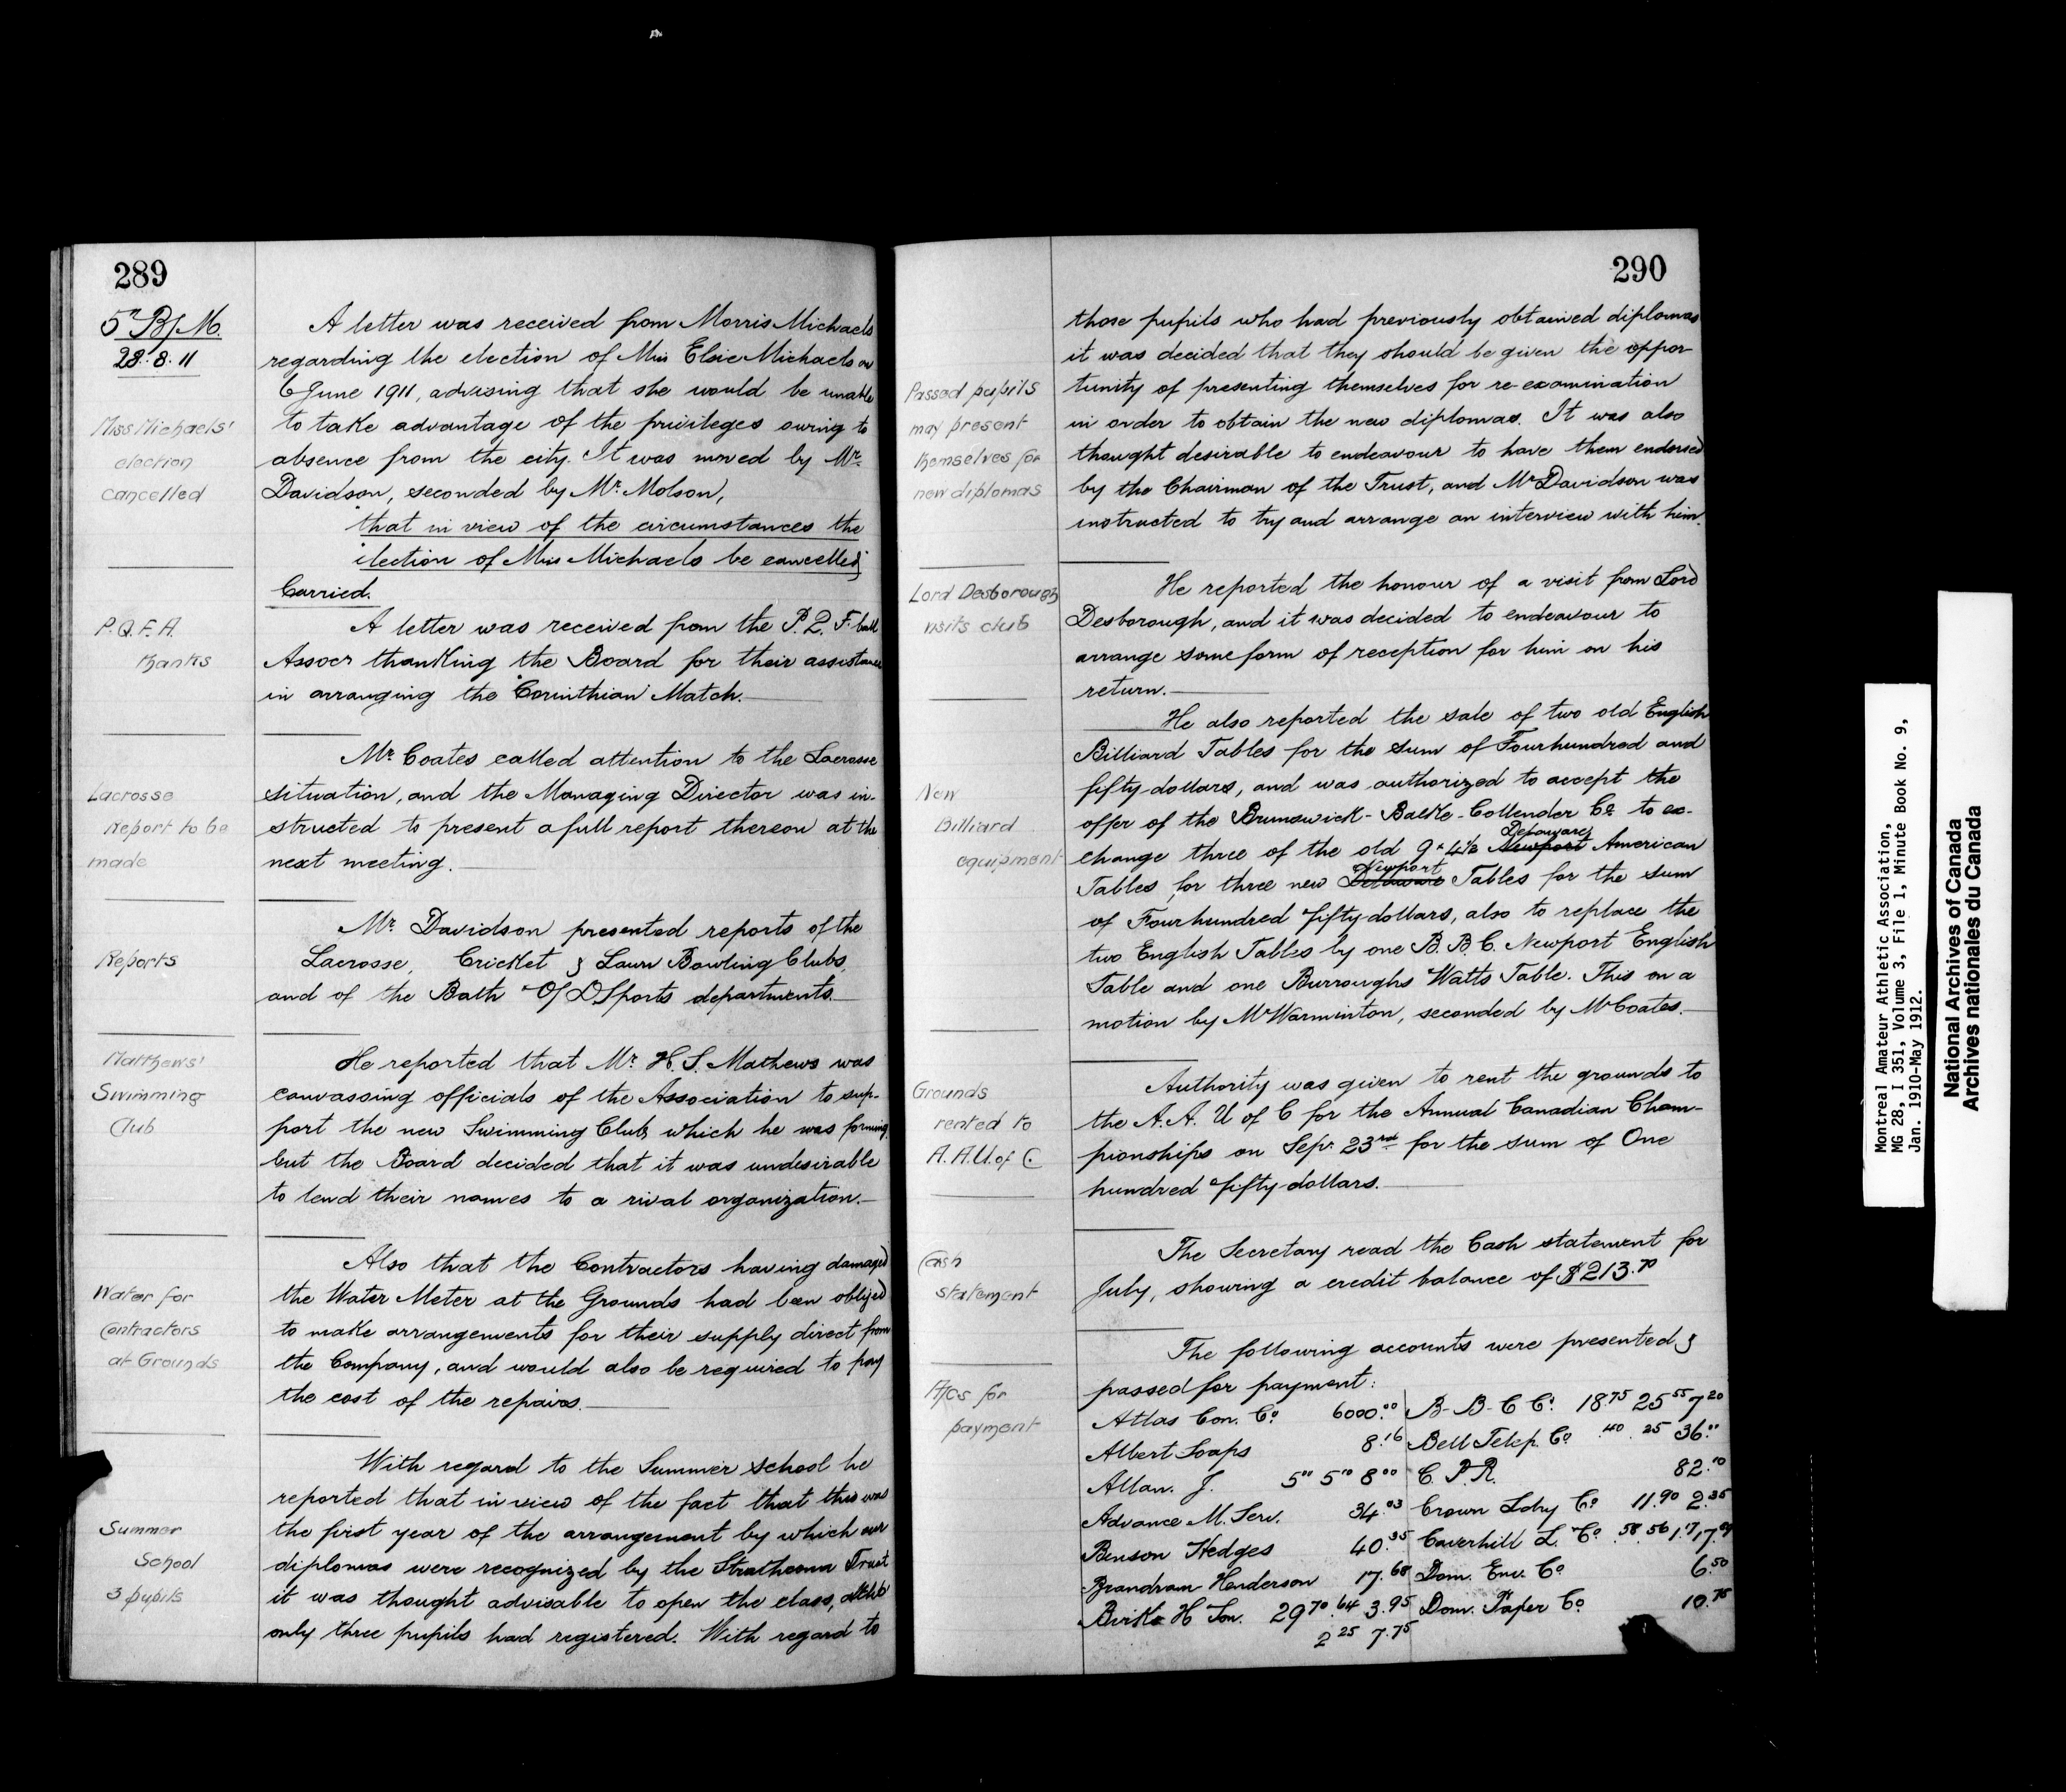 289
5th B/M.
28.8.11
A letter was received from Morris Michaels
regarding the election of Miss Elsie Michaels on
6 June 1911, advising that she would be unable
Miss Michaels'
election
cancelled
to take advantage of the privileges owing to
absence from the city. It was moved by Mr.
Davidson, seconded by Mr. Molson,
"that in view of the circumstances the
"election of Miss Michaels be cancelled"
Carried.
P.Q.F.A.
thanks
A letter was received from the P.Q. F.ball
Assocn thanking the Board for their assistance
in arranging the "Corinthian" Match.
Lacrosse
Report to be
made
Mr. Coates called attention to the Lacrosse
situation, and the Managing Director was in-
structed to present a full report thereon at the
next meeting.
Reports
Mr. Davidson presented reports of the
Lacrosse, Cricket & Lawn Bowling Clubs,
and of the Bath & O/D Sports departments.
Matthews'
Swimming
Club
He reported that Mr. H.S. Mathews was
canvassing officials of the Association to sup-
port the new Swimming Club, which he was forming,
but the Board decided that it was undesirable
to lend their names to a rival organization.
Water for
Contractors
at Grounds
Also that the Contractors having damaged
the Water Meter at the Grounds had been obliged
to make arrangements for their supply direct from
the Company, and would also be required to pay
the cost of the repairs.
Summer
School
3 pupils
With regard to the Summer school he
reported that in view of the fact that this was
the first year of the arrangement by which our
diplomas were recognized by the Strathcona Trust
it was thought advisable to open the class, altho'
only three pupils had registered. With regard to
290
those pupils who had previously obtained diplomas
it was decided that they should be given the oppor-
Passed pupils
may present
themselves for
new diplomas
tunity of presenting themselves for re-examination
in order to obtain the new diplomas. It was also
thought desirable to endeavour to have them endorsed
by the Chairman of the Trust, and Mr Davidson was
instructed to try and arrange an interview with him.
Lord Desborough
visits club
He reported the honour of a visit from Lord
Desborough, and it was decided to endeavour to
arrange some form of reception for him on his
return.
New
Billiard
equipment
He also reported the sale of two old English
Billiard Tables for the sum of Four hundred and
fifty dollars, and was authorized to accept the
offer of the Brunswick-Balke-Collender Co. to ex-
Delaware
change three of the old 9 x 4½ Newport American
Newport
Tables, for three new Delaware Tables for the sum
of Four hundred & fifty dollars, also to replace the
two English Tables by one B.B.C. Newport English
Table and one Burroughs & Watts Table. This on a
motion by Mr Warminton, seconded by Mr Coates.
Grounds
rented to
A.A.U. of C.
Authority was given to rent the grounds to
the A.A. U of C for the Annual Canadian Cham-
pionships on Sep. 23rd for the sum of One
hundred & fifty dollars.
Cash
statement
The Secretary read the Cash statement for
July, showing a credit balance of $213.70
A/cs for
payment
The following accounts were presented &
passed for payment:
Atlas Con. Co. 6000.00 B-B-C Co. 18.75 25.55 7.20
Albert Soaps 8.16 Bell Telep. Co. .40 .25 36.00
Allan. J. 5.00 5.10 8.00 C.P.R. 82.10
Advance M. Serv. 34.03 Crown Ldry Co. 11.90 2.35
Benson Hedges 40.35 Caverhill L. Co. .58 .56 1.17
Brandram Henderson 17.68 Dom. Env. Co. 6.50
Birks H Son. 29.70 .64 3.95 Dom. Paper Co. 10.75
2.25 7.75
Montreal Amateur Athletic Association,
MG 28, I 351, Volume 3, File 1, Minute Book No. 9,
Jan. 1910-May 1912.
National Archives of Canada
Archives nationales du Canada